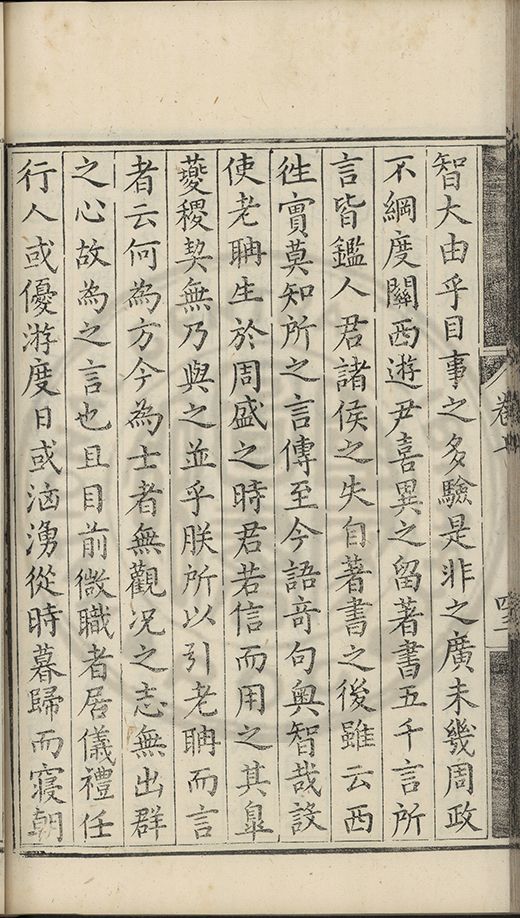 智大由乎目事之多驗是非之廣未幾周政
不綱度關西遊尹喜異之留著書五千言所
言皆鑑人君諸侯之失自著書之後雖云西
徃實莫知所之言傳至今語竒句奧智哉設
使老聃生於周盛之時君若信而用之其臯
䕫稷契無乃與之並乎朕所以引老聃而言
者云何為方今為士者無觀况之志無出群
之心故為之言也且目前微職者居儀禮任
行人或優游度日或洶湧從時暮歸而寢朝
卷十